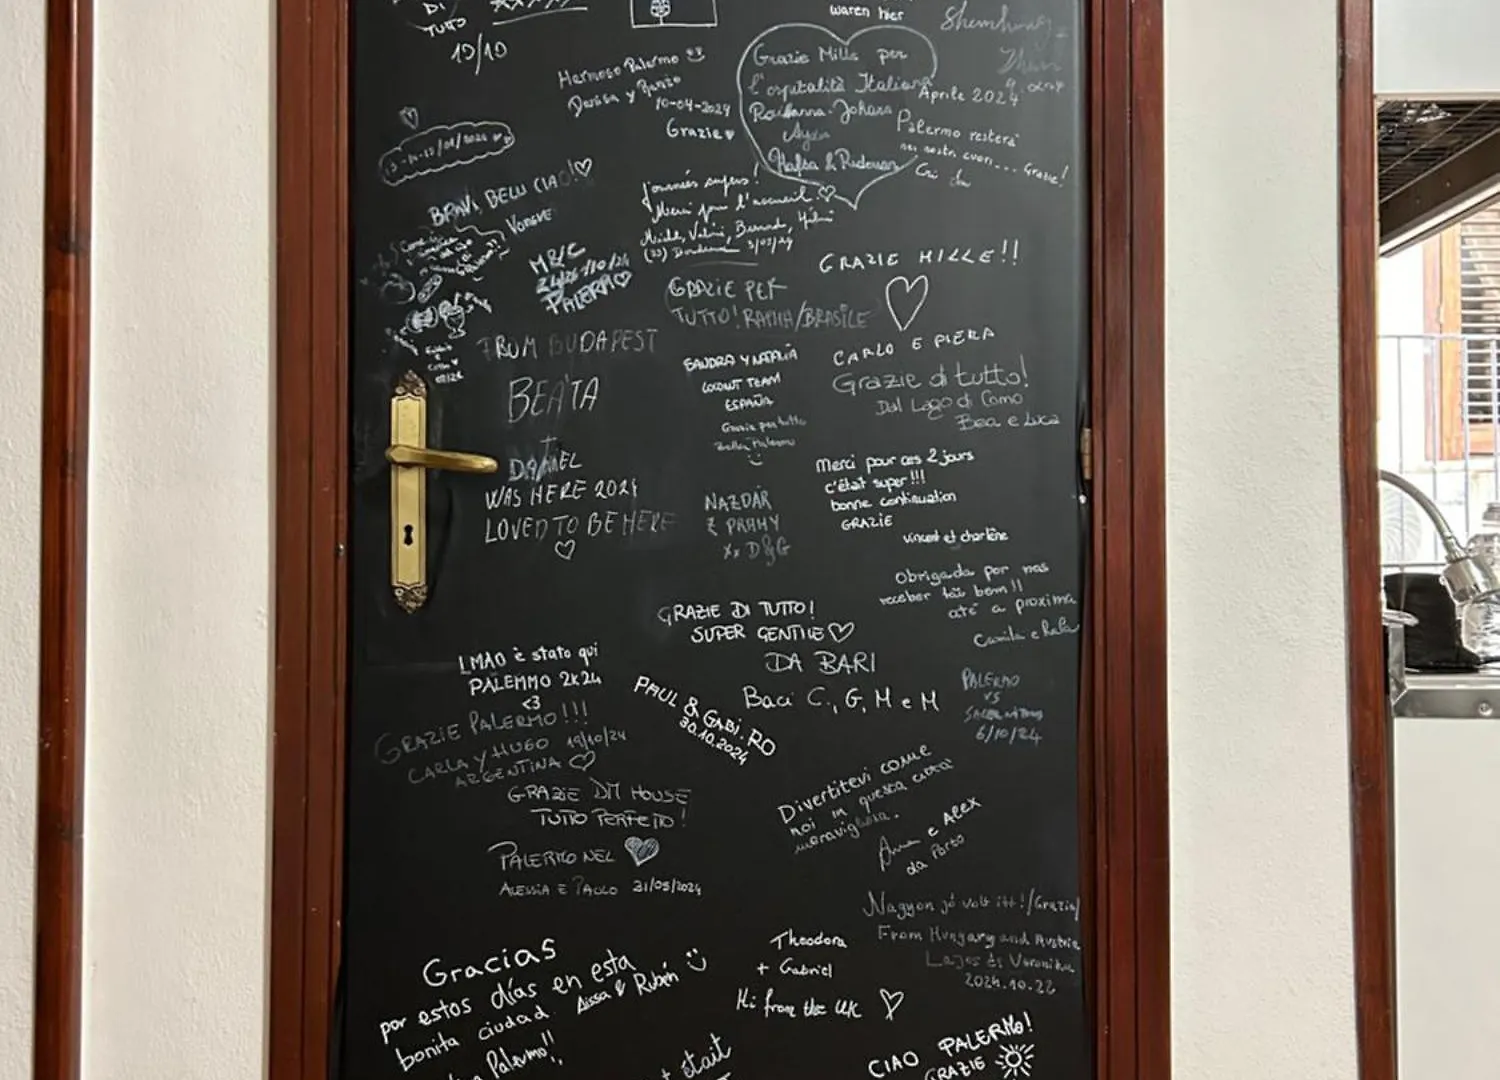 DI
TUTTO
10/10
waren hier
Hermoso Palermo
10-04-2024
Grazie
Grazie Mille per
l'ospitalità Italiana
Aprile 2024
Palermo resterà
nei nostri cuori... Grazie!
BRAVI, BELLI CIAO!
Merci pour l'accueil
3/05/24
M&C
24/26/10/24
PALERMO
GRAZIE MILLE!!
CARLO E PIERA
GRAZIE PER
TUTTO! /BRASILE
FROM BUDAPEST
BEÁTA
DANIEL
WAS HERE 2024
LOVED TO BE HERE
SANDRA Y NATALIA
TEAM
ESPAÑA
Grazie per tutto
Bella Palermo
Grazie di tutto!
Dal Lago di Como
Bea e Luca
Merci pour ces 2 jours
c'était super!!!
bonne continuation
GRAZIE
vincent et charlène
NAZDAR
Z PRAHY
XX D&G
Obrigada por nos
receber tão bem!!
até a proxima
Camila e Rafa
GRAZIE DI TUTTO!
SUPER GENTILE
DA BARI
Baci C., G, M e M
LMAO è stato qui
PALEMMO 2K24
<3
GRAZIE PALERMO!!!
CARLA Y HUGO 19/10/24
ARGENTINA
PAUL & GABI.RO
30.10.2024
PALERMO
VS
6/10/24
GRAZIE DM HOUSE
TUTTO PERFETTO!
Divertitevi come
noi in questa città
meravigliosa.
Anna e Alex
da Porto
PALERMO NEL
ALESSIA E PAOLO 31/05/2024
Nagyon jó volt itt!/Grazie/
From Hungary and Austria
Lajos és Veronika
2024.10.22
Theodora
+ Gabriel
Hi from the UK
Gracias
por estos días en esta
bonita ciudad. Aissa y Rubén
Palermo!!
était
CIAO PALERMO!
GRAZIE